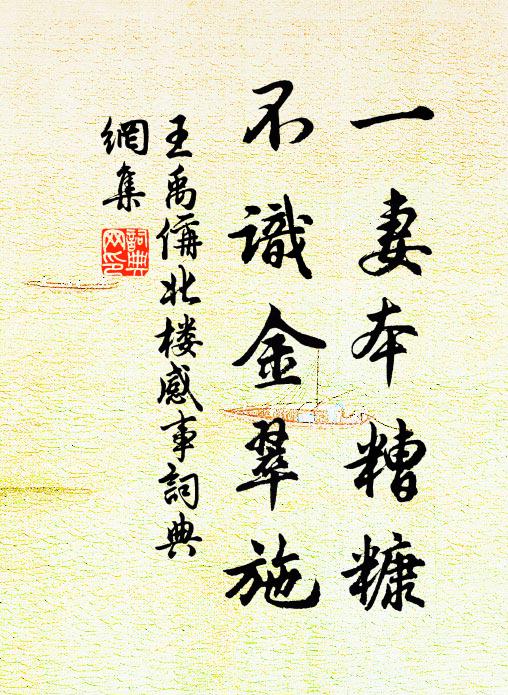 一妻本糟糠
不識金翠施
王禹偁北楼感事詞典
網集
詞典
网印